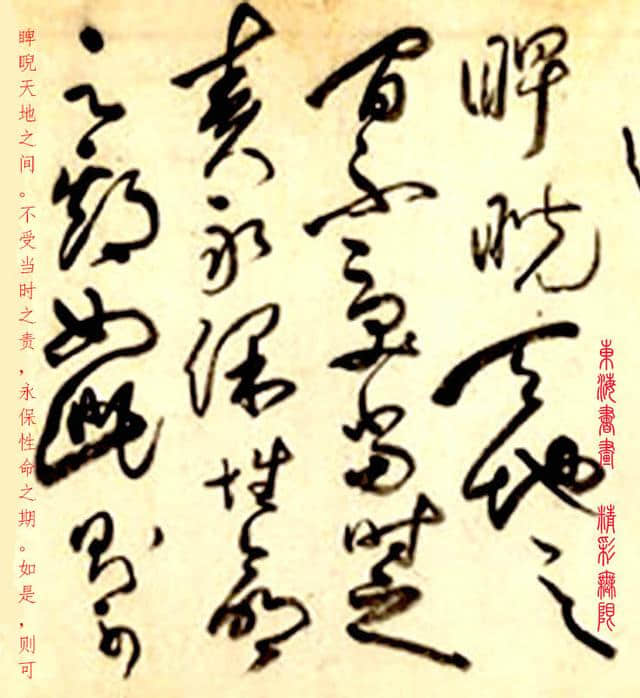 睥睨天地之
間不受當時之
責永保性命
之期如此則可
東海書畫 精彩無限
睥睨天地之间。不受当时之责,永保性命之期。如是,则可